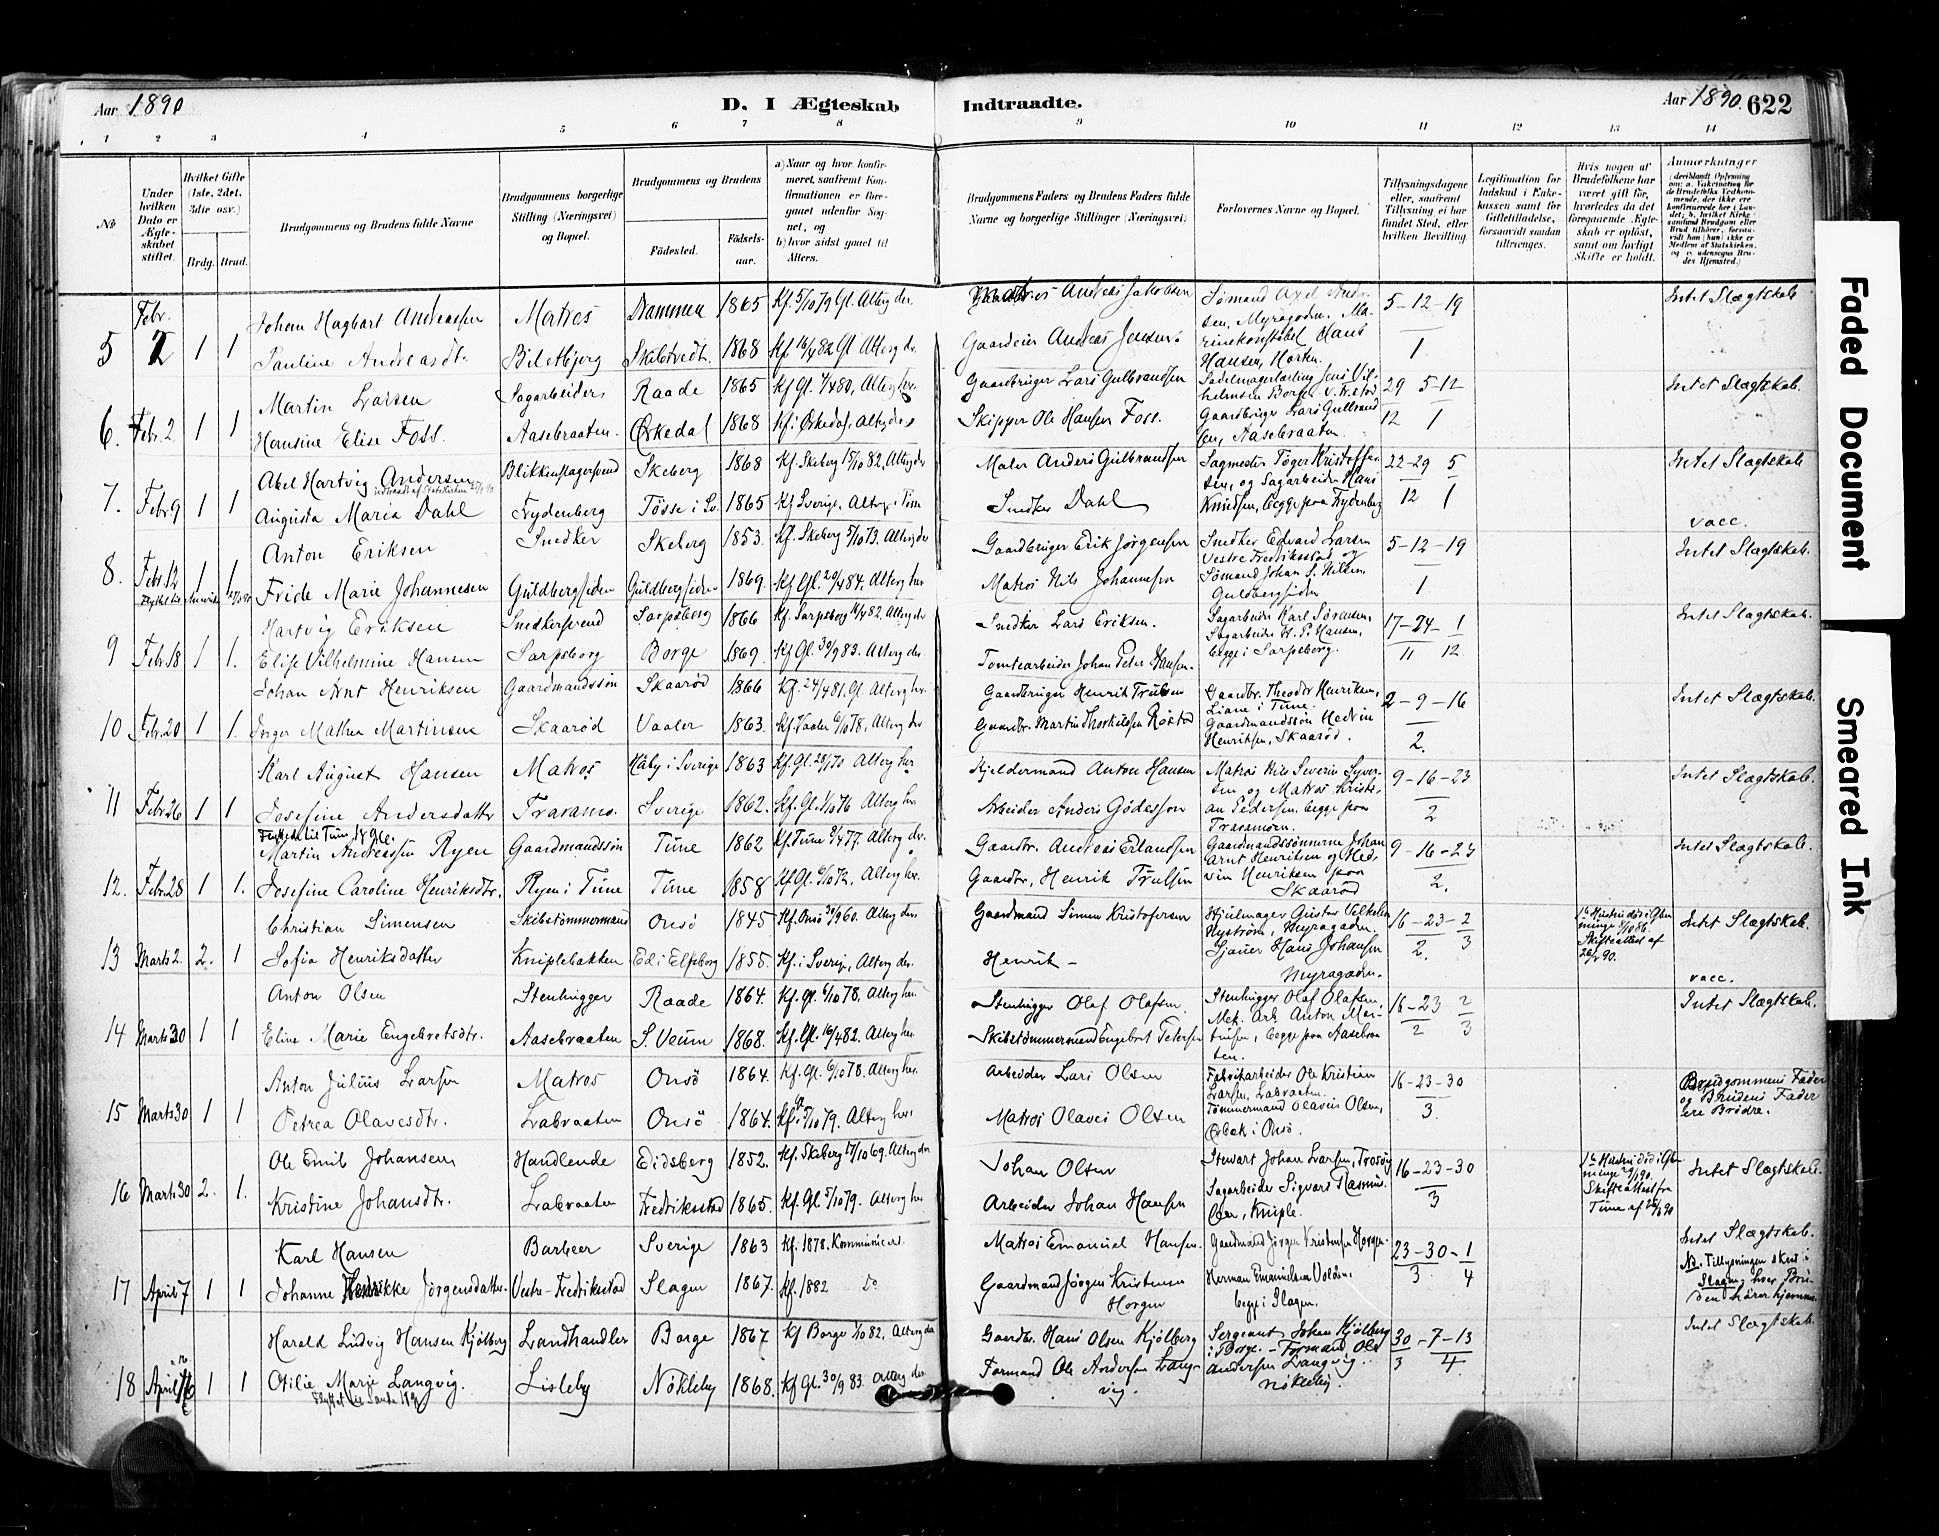 Aar 1890
D. I Ægteskab Indtraadte.
Aar 1890. 622
1 2 3 4 5 6 7 8 9 10 11 12 13 14
No
Under hvilken Dato er Ægteskabet stiftet.
Hvilket Gifte (1ste, 2det, 3die osv.)
Brdg. Brud.
Brudgommens og Brudens fulde Navne
Brudgommens borgerlige Stilling (Næringsvei) og Bopæl.
Brudgommens og Brudens
Fødested.
Fødselsaar.
a) Naar og hvor konfirmeret, saafremt Konfirmationen er foregaaet udenfor Sognet, og
b) hvor sidst gaaet til Alters.
Brudgommens Faders og Brudens Faders fulde Navne og borgerlige Stillinger (Næringsvei)
Forlovernes Navne og Bopæl.
Tillysningsdagene eller, saafremt Tillysning ei har fundet Sted, efter hvilken Bevilling.
Legitimation for Indskud i Enkekassen samt for Giftetilladelse, forsaavidt saadan tiltrænges.
Hvis nogen af Brudefolkene har været gift før, hvorledes da det foregaaende Ægteskab er opløst, samt om lovligt Skifte er holdt.
Anmærkninger
5 Febr. 2 1 1
Johan Hagbart Andreassen Matros 1865 Kf. 5/10 79 Gl. Alterg. der Andreas Jakobsen 5-12-19 Intet Slægtskab
Pauline Andreasdt. 1868 Kf. 16/4 82 Gl. Alterg. dr. Gaardeier Andreas Jensen 1
6. Febr. 2 1 1
Martin Larsen Sagarbeider Raade 1865 Gaardbruger Lars Gulbrandsen 29 5-12 Intet Slægtskab.
Hansine Elise Foss. Aasebraaten. Ørkedal 1868 Kf. i Ørkedal, Skipper Ole Hansen Foss. Gaardbruger Lars Gulbrandsen, Aasebraaten. 12 1
7. Febr. 9 1 1
Abel Hartvig Andersen Skeberg 1868 Kf. Skeberg 15/10 82, Alterg der Maler Anders Gulbrandsen 22-29 5 Intet Slægtskab
Augusta Maria Dahl Frydenberg Tösse i Sv. 1865 Kf. Sverige, Alterg. i Tune Snedker Dahl Knudsen, begge paa Frydenberg 12 1
vacc.
8. Febr. 12 1 1
Anton Eriksen Snedker Skeberg 1853. Kf. Skeberg 5/10 73. Alterg der Gaardbruger Erik Jørgensen Snedker Edvard Larsen Vestre Fredriksstad og 5-12-19 Intet Slægtskab.
Fride Marie Johannesen Guldbergsiden Guldbergsiden 1869. Kf Gl. 20/4 84. Alterg her Matros Nils Johannesen Sømand Johan S. Nilsen Guldbergsiden 1
9 Febr. 18 1 1.
Hartvig Eriksen Snedkersvend Sarpsborg 1866 Kf. Sarpsborg 16/4 82. Alterg der Snedker Lars Eriksen. Sagarbeider Karl Sørensen, 17-24-1 Intet Slægtskab.
Elise Vilhelmine Hansen Sarpsborg Borge 1869. Kf Gl. 30/9 83. Alterg der. Tomtearbeider Johan Peter Hansen. Sagarbeider H. P. Hansen, begge i Sarpsborg. 11 12
10 Febr. 20 1 1.
Johan Arnt Henriksen Gaardmandssøn Skaarød 1866 Kf. 24/4 81. Gl. Alterg her. Gaardbruger Henrik Trulsen Gaardbr. Theodor Henriksen, Liane i Tune. 2-9-16 Intet Slægtskab.
Inger Mathea Martinsen Skaarød Vaaler 1863. Kf. Vaaler 6/10 78. Alterg der Gaardbr. Martin Thorkilsen Røstad Gaardmandssøn Hedvin Henriksen, Skaarød. 2.
11 Febr. 26 1 1
Karl August Hansen Matros Håby i Sverige 1863 Alterg her Kjeldermand Anton Hansen Matros Nils Severin Syversen og Matros Kristian Pedersen, begge paa 9-16-23 Intet Slægtskab.
Josefine Andersdatter Traramo. Sverige 1862. Alterg her. Arbeider Anders Gødesson 2
12. Febr. 28 1 1.
Flyttet til Tune 1896.
Martin Andreassen Ryen Gaardmandssøn Tune 1862 Kf. Tune 8/4 77. Alterg dr. Gaardbr. Andreas Erlandsen Gaardmandssønnerne Johan Arnt Henriksen og Hedvin Henriksen paa Skaarød 9-16-23 Intet Slægtskab.
Josefine Caroline Henriksdtr. Ryen i Tune Tune 1858 Kf Gl. 6/10 72. Alterg her. Gaardbr. Henrik Trulsen 2.
13 Marts 2. 2. 1
Christian Simensen Skibstømmermand Onsö 1845 Kf. Onsö 30/9 60. Alterg der Gaardmand Simen Kristofersen Hjulmager Gustav Velhelm Nystrøm, Myragaden. 16-23-2 Intet Slægtskab.
Sofia Henriksdatter Kniplebakken Ed i Elfsborg 1855. Kf. i Sverige, Alterg der. Henrik - Sjauer Hans Johansen Myragaden. 2. 3
vacc.
14 Marts 30 1 1
Anton Olsen Stenhugger Raade 1864. Kf. Gl. 6/10 78. Alterg her. Stenhugger Olaf Olafsen. Stenhugger Olaf Olafsen, 16-23 2 Intet Slægtskab.
Eline Marie Engebretsdtr. Aasebraaten S. Veum 1868. Kf. Gl. 16/4 82. Alterg her Skibstømmermand Engebret Petersen Mek. Arb. Anton Martinsen, begge paa Aasebraaten. 2 3
15 Marts 30 1 1
Anton Julius Larsen Matros Onsö 1864. Kf. Gl. 6/10 78. Alterg her. Arbeider Lars Olsen Fabrikarbeider Ole Kristian Larsen, Labraaten. 16-23-30 Brudgommens Fader og Brudens Fader ere Brødre.
Petrea Olavesdtr. Labraaten Onsö 1864. Kf. Gl. 5/10 79. Alterg her. Matros Olaves Olsen Tømmermand Olaves Olsen, Ørbek i Onsö. 3.
16 Marts 30 2. 1.
Ole Emil Johansen Handlende Eidsberg 1852. Kf. Skeberg 17/10 69. Alterg der Johan Olsen Stewart Johan Larsen, Trosøy 16-23-30 Intet Slægtskab.
Kristine Johansdtr. Labraaten Fredriksstad 1865. Kf. Gl. 5/10 79. Alterg her Arbeider Johan Hansen Sagarbeider Sigvart Rasmussen, Kniple. 3
17 April 7 1 1
Karl Hansen Barbeer Sverige 1863 Kf. 1878. Matros Emanuel Hansen. Gaardmand Jørgen Kristensen Horgen. 23-30-1 Intet Slægtskab.
Johanne Henrikke Jörgensdatter. Vestre-Fredriksstad Slagen 1867. Kf. 1882 Do Gaardmand Jørgen Kristensen Horgen begge i Slagen. 3. 4
NB. Tillysningen skeet i Slagen, hvor Bruden hører hjemme.
18 April 16 1 1
Harald Ludvig Hansen Kjölberg Landhandler Borge 1867 Kf Borge 1/10 82. Alterg der Gaardbr. Hans Olsen Kjölberg Sergeant Johan Kjölberg i Borge. - Formand Ole Andersen Langvig. Nökleby. 30-7-13 Intet Slægtskab.
Otilie Marie Langvig. Lisleby Nökleby 1868. Kf Gl. 30/9 83. Alterg der. Formand Ole Andersen Langvig. 3 4
Faded Document
Smeared Ink